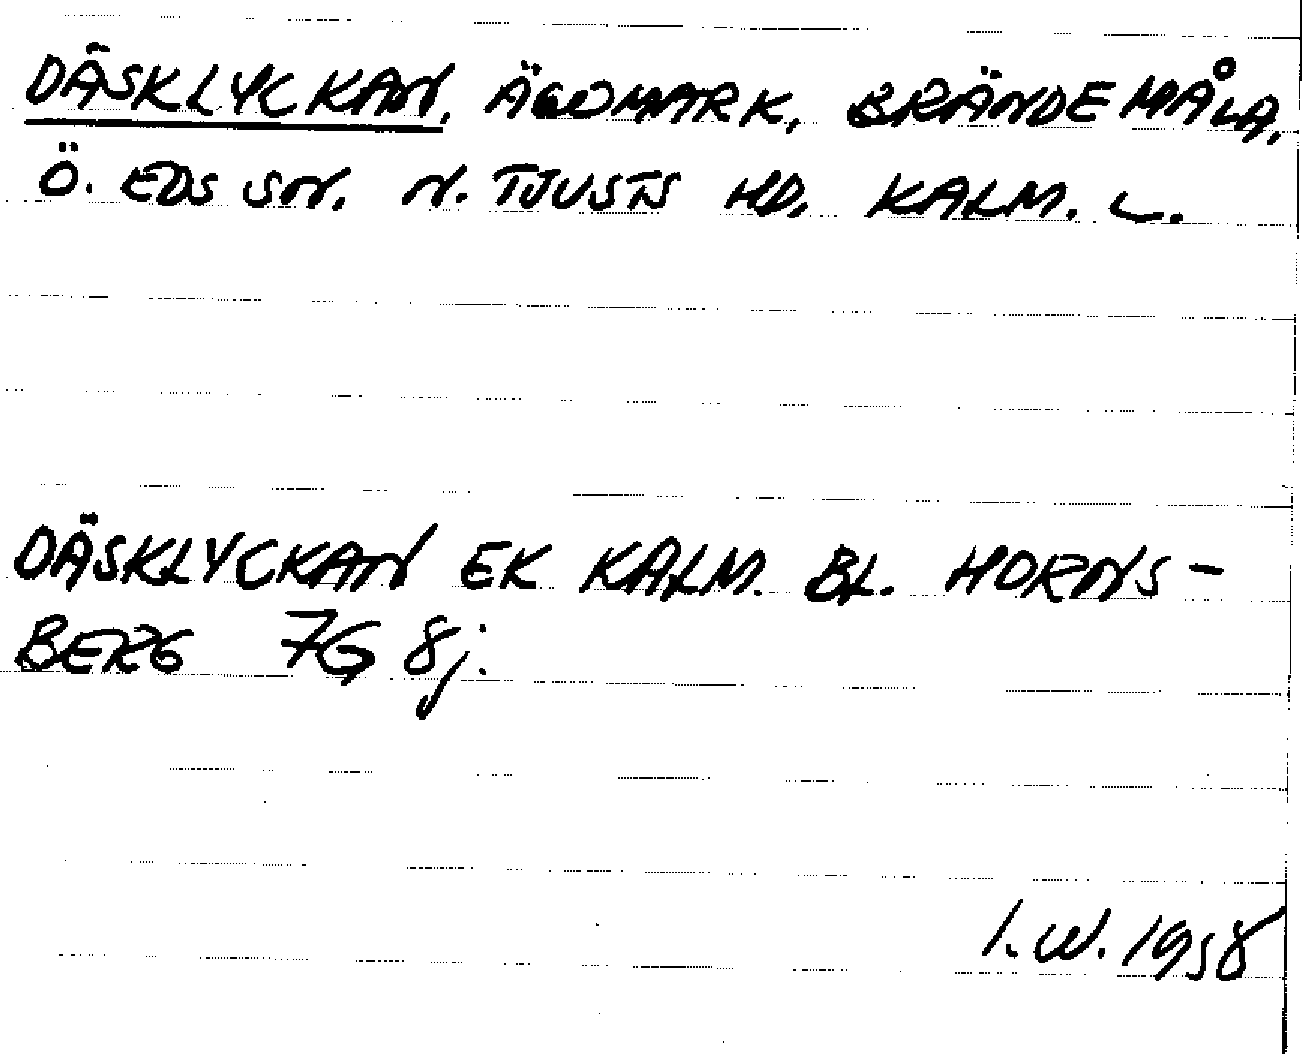 DÄSKLYCKAN, ÄGOMARK, BRÄNDEMÅLA,
Ö. EDS SN. N. TJUSTS HD. KALM. L.
DÄSKLYCKAN EK KALM. BL. HORNS-
BERG 7G 8j:
I.W. 1958